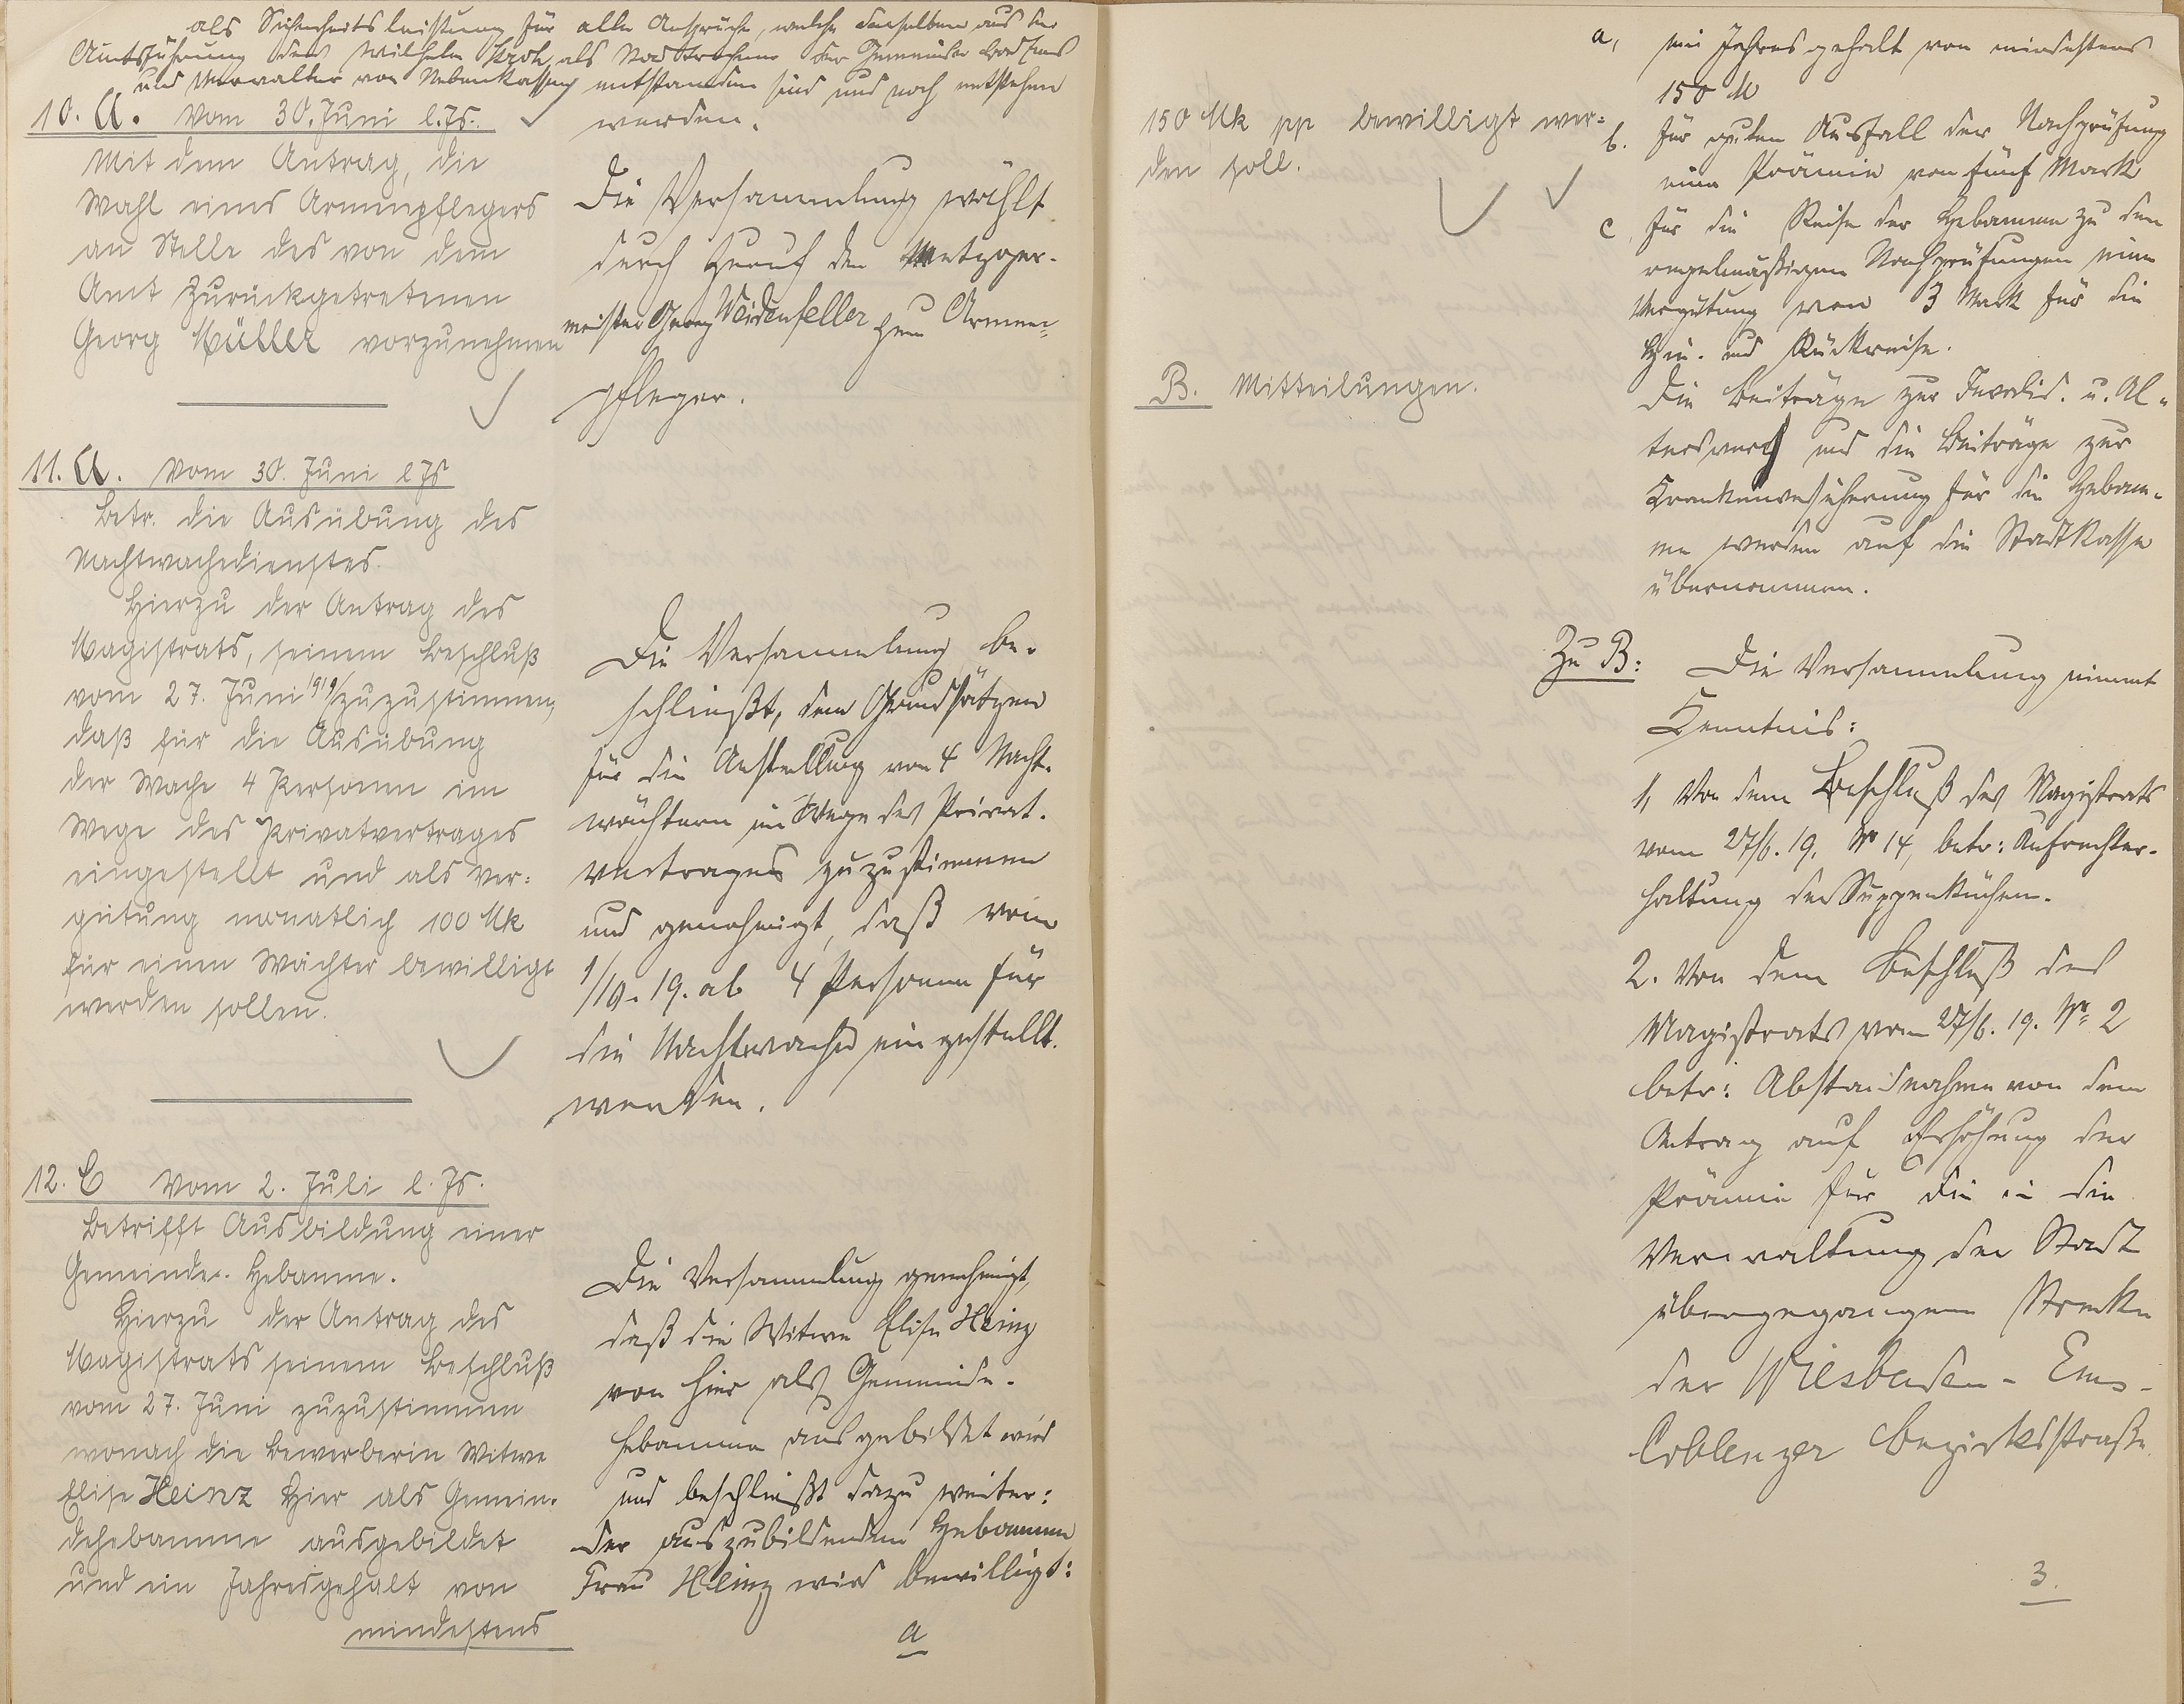 als Sicherheitsleistung für alle Ansprüche, welche derselben aus der
Amtsführung des Wilhelm als Stadtrechner der Gemeinde Bad Ems
und Verwalter von Nebenkassen entstanden sind und noch entstehen
werden.
10. A. Vom 30. Juni l. Js.
Mit dem Antrag, die
Wahl eines Armenpflegers
an Stelle des von dem
Amt zurückgetretenen
Georg Müller vorzunehmen
Die Versammlung wählt
durch Zuruf den Metzger-
meister Georg Weidenfeller zum Armen-
pfleger.
11. A. Vom 30. Juni l Js
Betr. die Ausübung des
Nachtwachedienstes.
Hierzu der Antrag des
Magistrats, seinem Beschluß
vom 27. Juni 1919 zuzustimmen,
daß für die Ausübung
der Wache 4 Personen im
Wege des Privatvertrages
eingestellt und als Ver-
gütung monatlich 100 Mk
für einen Wächter bewilligt
werden sollen.
Die Versammlung be-
schließt, den Grundsätzen
für die Anstellung von 4 Nacht-
wächtern im Wege des Privat-
vertrages zuzustimmen
und genehmigt, daß vom
1/10. 19. ab 4 Personen für
die Nachtwache eingestellt
werden.
12. C Vom 2. Juli l. Js.
Betrifft Ausbildung einer
Gemeinde-Hebamme.
Hierzu der Antrag des
Magistrats seinem Beschluß
vom 27. Juni zuzustimmen
wonach die Bewerberin Witwe
Elise Heinz hier als Gemein-
dehebamme ausgebildet
und ein Jahresgehalt von
mindestens
Die Versammlung genehmigt,
daß die Witwe Elise Heinz
von hier als Gemeinde-
hebamme ausgebildet wird
und beschließt dazu weiter:
Der auszubildenden Hebamme
Frau Heinz wird bewilligt:
a
150 Mk pp bewilligt wer-
den soll.
a, ein Jahresgehalt von mindestens
150 M
b. für guten Ausfall der Nachprüfung
eine Prämie von fünf Mark
c, für die Reise der Hebamme zu den
regelmäßigen Nachprüfungen eine
Vergütung von 3 Mark für die
Hin- und Rückreise.
Die Beiträge zur Invalid. u. Al-
tersvers und die Beiträge zur
Krankenversicherung für die Hebam-
me werden auf die Stadtkasse
übernommen.
B. Mitteilungen.
Zu B: Die Versammlung nimmt
Kenntnis:
1, Von dem Beschluß des Magistrats
vom 27/6. 19. No 14, betr: Aufrechter-
haltung der Suppenküchen.
2. Von dem Beschluß des
Magistrats vom 27/6. 19. No 2
betr: Abstandnahme von dem
Antrag auf Erhöhung der
Prämie für die in die
Verwaltung der Stadt
übergegangene Strecke
der Wiesbaden-Ems-
Coblenzer Bezirksstraße.
3.